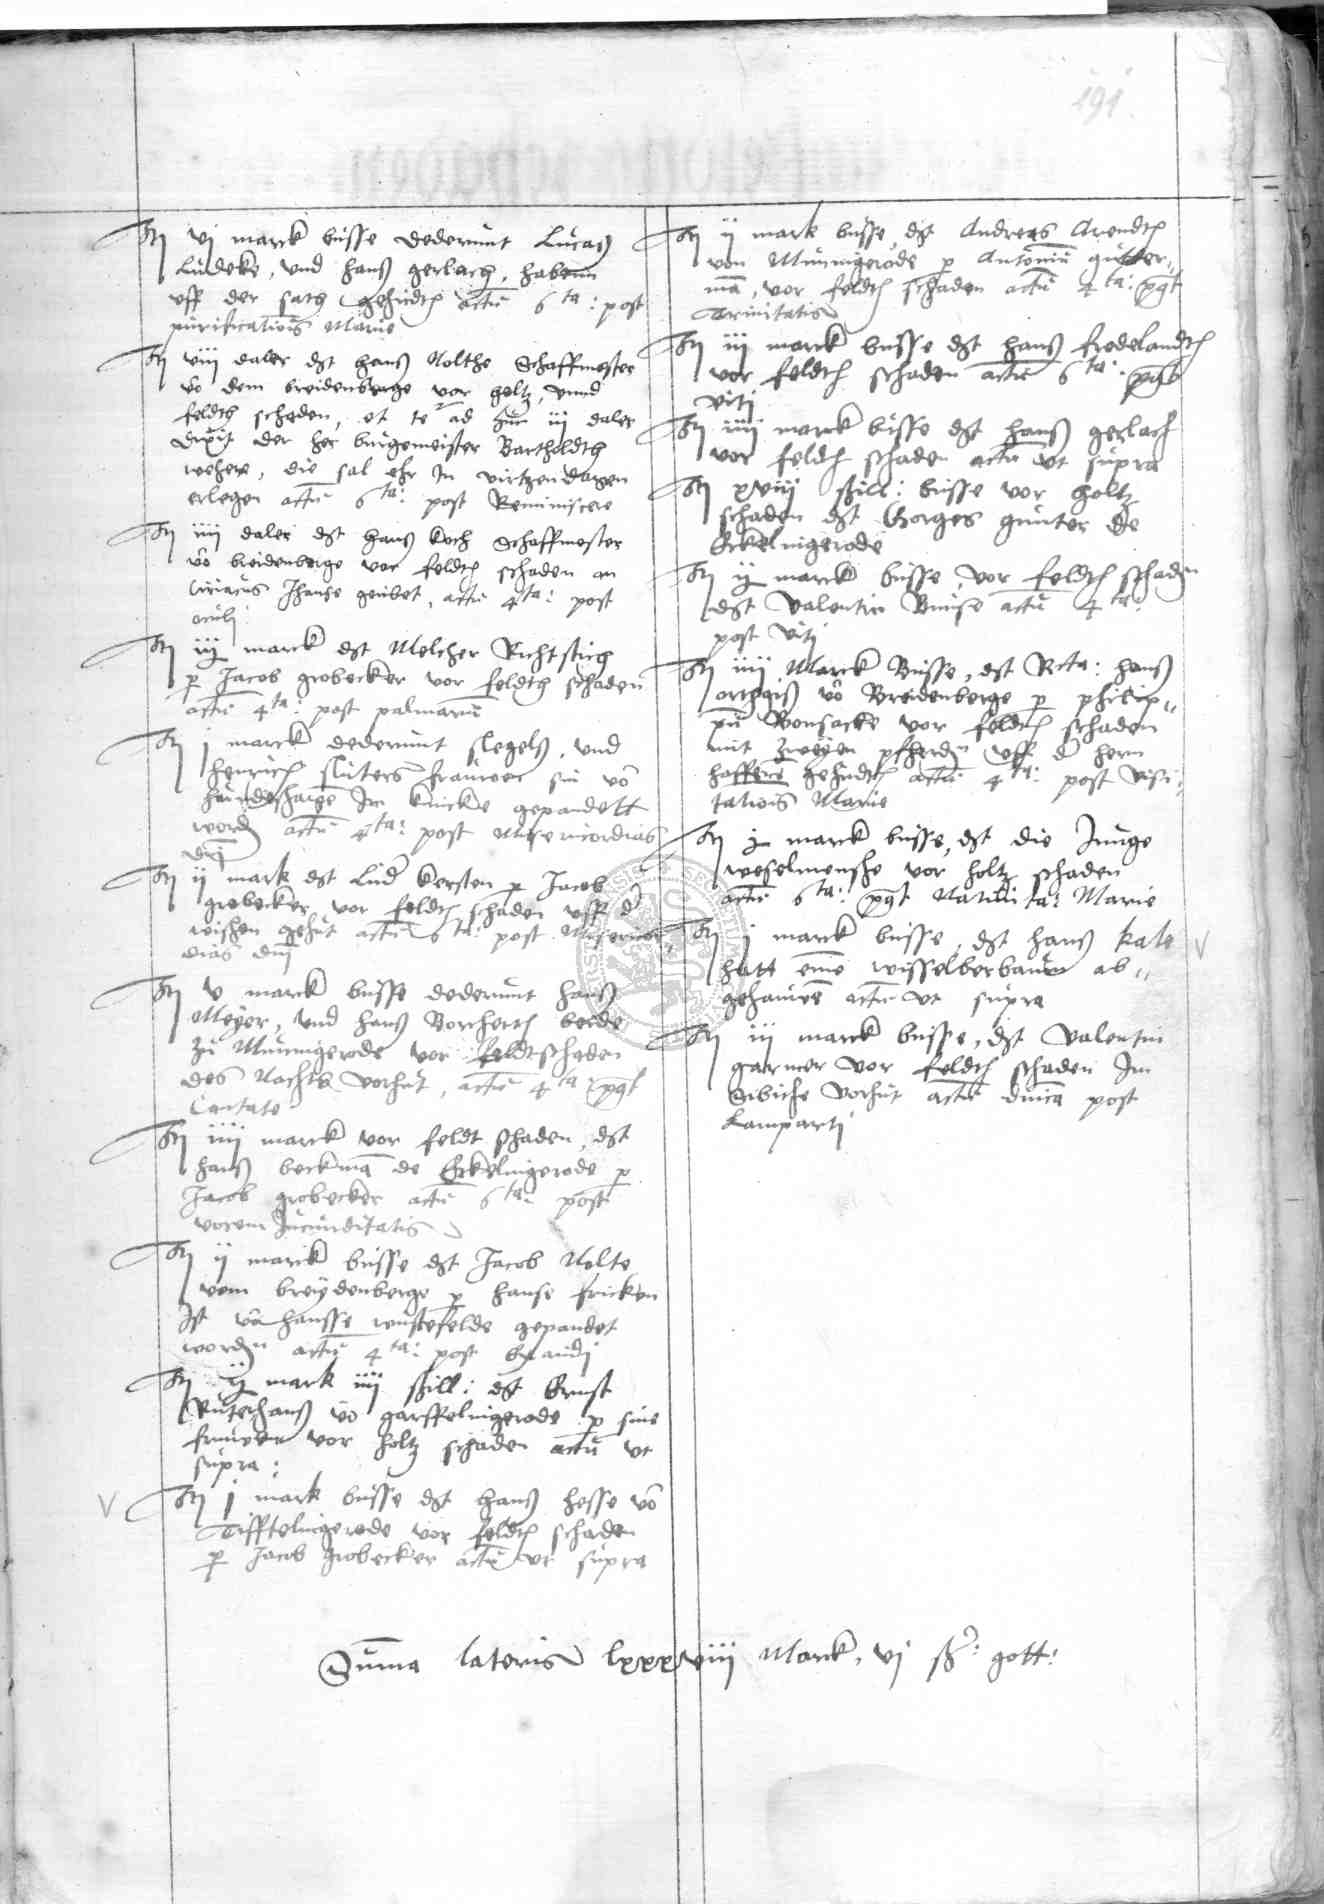 191
It vj marck busse dederunt Lucaß
Ludeke, und hanß gerlach, habenn
uff der sath gehudth actu 6ta: post
purificationis Marie
It viij daler dst hanß Nolthe Schaffmester
vo dem breidenberge vor holtz, unnd
feldth schaden, et te ad hur iij daler
dixit der her burgemeister Bartholdth
wehere, die sal ehr In virtzendagen
erlegen actu 6ta: post Reminiscere
It iiij daler dst hanß koch Schaffmester
vo breidenberge vor feldth schaden an
Ciriacus Ihanse geubet, actu 4ta: post
oculi
It iij marck dst Melcher Richtstich
p Jacob grobecker vor feldth schaden
actu 4ta: post palmaru
It j marck dederunt slegelß, und
henrich sluters frauwen sin vo
hundeshage Im knicke gepandett
word actu 4ta: post Misericordias
dnj
It ij mark dst Lud kersten p Jacob
grobecker vor feldth schaden uff d
wischen gehut actu 6ta: post Misericor
dias dnj
It v marck busse dederunt hanß
Meyer, und hanß Borcherth beide
zu Munnigerode vor feldtschaden
des Nachts vorhut, actu 4ta pqt
Cantate
It iiij marck vor feldt schaden, dst
hanß beckma de Eckelingerode p
Jacob grobecker actu 6ta: post
vocem Jucunditatis
It ij marck busse dst Jacob Nolte
vom breydenberge p hanse fricken
Ist vo hansse wustefelde gepandet
word actu 4ta: post Exaudi
It ij mark iiij ßill: dst Ernst
Ruterhanß vo garffelingerode p sine
fruwen vor holtz schaden actu ut
supra:
It j mark busse dst hanß hesse vo
Tifftelingerode vor feldth schaden
p Jacob grobecker actu ut supra
It ij mark busse, dst Andreas Arendth
von Munnigerode p Antoniu gutter„
ma, vor feldth schaden actu 4ta: pqt
Trinitatis
It iij marck busse dst hanß fredelandth
vor feldth schaden actu 6ta: pqt
viti
It iiij marck busse dst hanß gerlach
vor feldth schaden actu ut supra
It xviij ßill: busse vor holtz
schaden dst Gorges gunter de
Eckelingerode
It ij marck busse, vor feldth schaden
dst Valentin Buuse actu 4ta:
post viti
It iiij Marck Busse, dst Rcta: hanß
arthgiß vo Breidenberge p philip„
pu Bonsacke vor feldth schaden
mit zweyen pherd uff d hern
haffere gehudth actu 4ta: post visi
tationis Marie
It ij marck busse, dst die Junge
weselmenshe vor holtz schaden
actu 6ta: pqt Nativita: Marie
It j marck busse, dst hanß kale
hatt eine wisselberbaum ab„
gehauwe actu ut supra
It iij marck busse, dst Valentin
garmer vor feldth schaden Im
Sibiche vorhut actu dnica post
Lamparti
Suma lateris lxxxviij Marck, vj ß: gott: